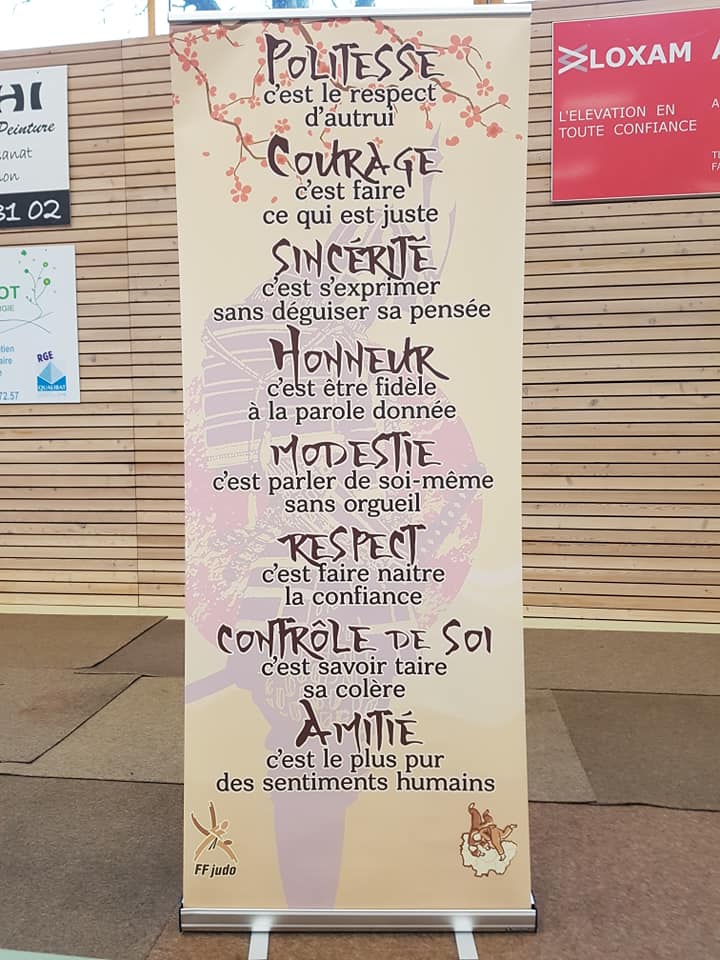 POLITESSE
c'est le respect
d'autrui
COURAGE
c'est faire
ce qui est juste
SINCÉRITÉ
c'est s'exprimer
sans déguiser sa pensée
HONNEUR
c'est être fidèle
à la parole donnée
MODESTIE
c'est parler de soi-même
sans orgueil
RESPECT
c'est faire naitre
la confiance
CONTRÔLE DE SOI
c'est savoir taire
sa colère
AMITIÉ
c'est le plus pur
des sentiments humains
FF judo
HI
Peinture
31 02
RGE
QUALIBAT
72.57
LOXAM A
L'ELEVATION EN
TOUTE CONFIANCE